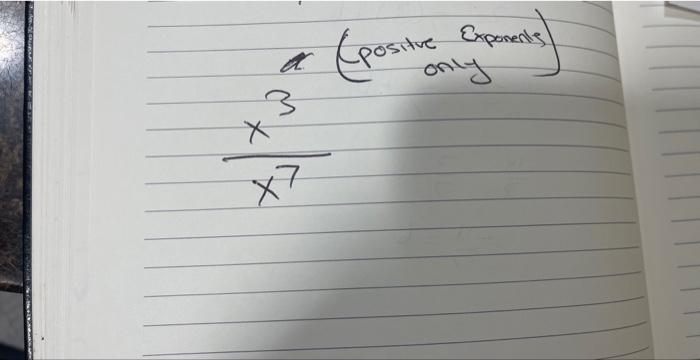 (positive Exponents
only)
x³
x⁷